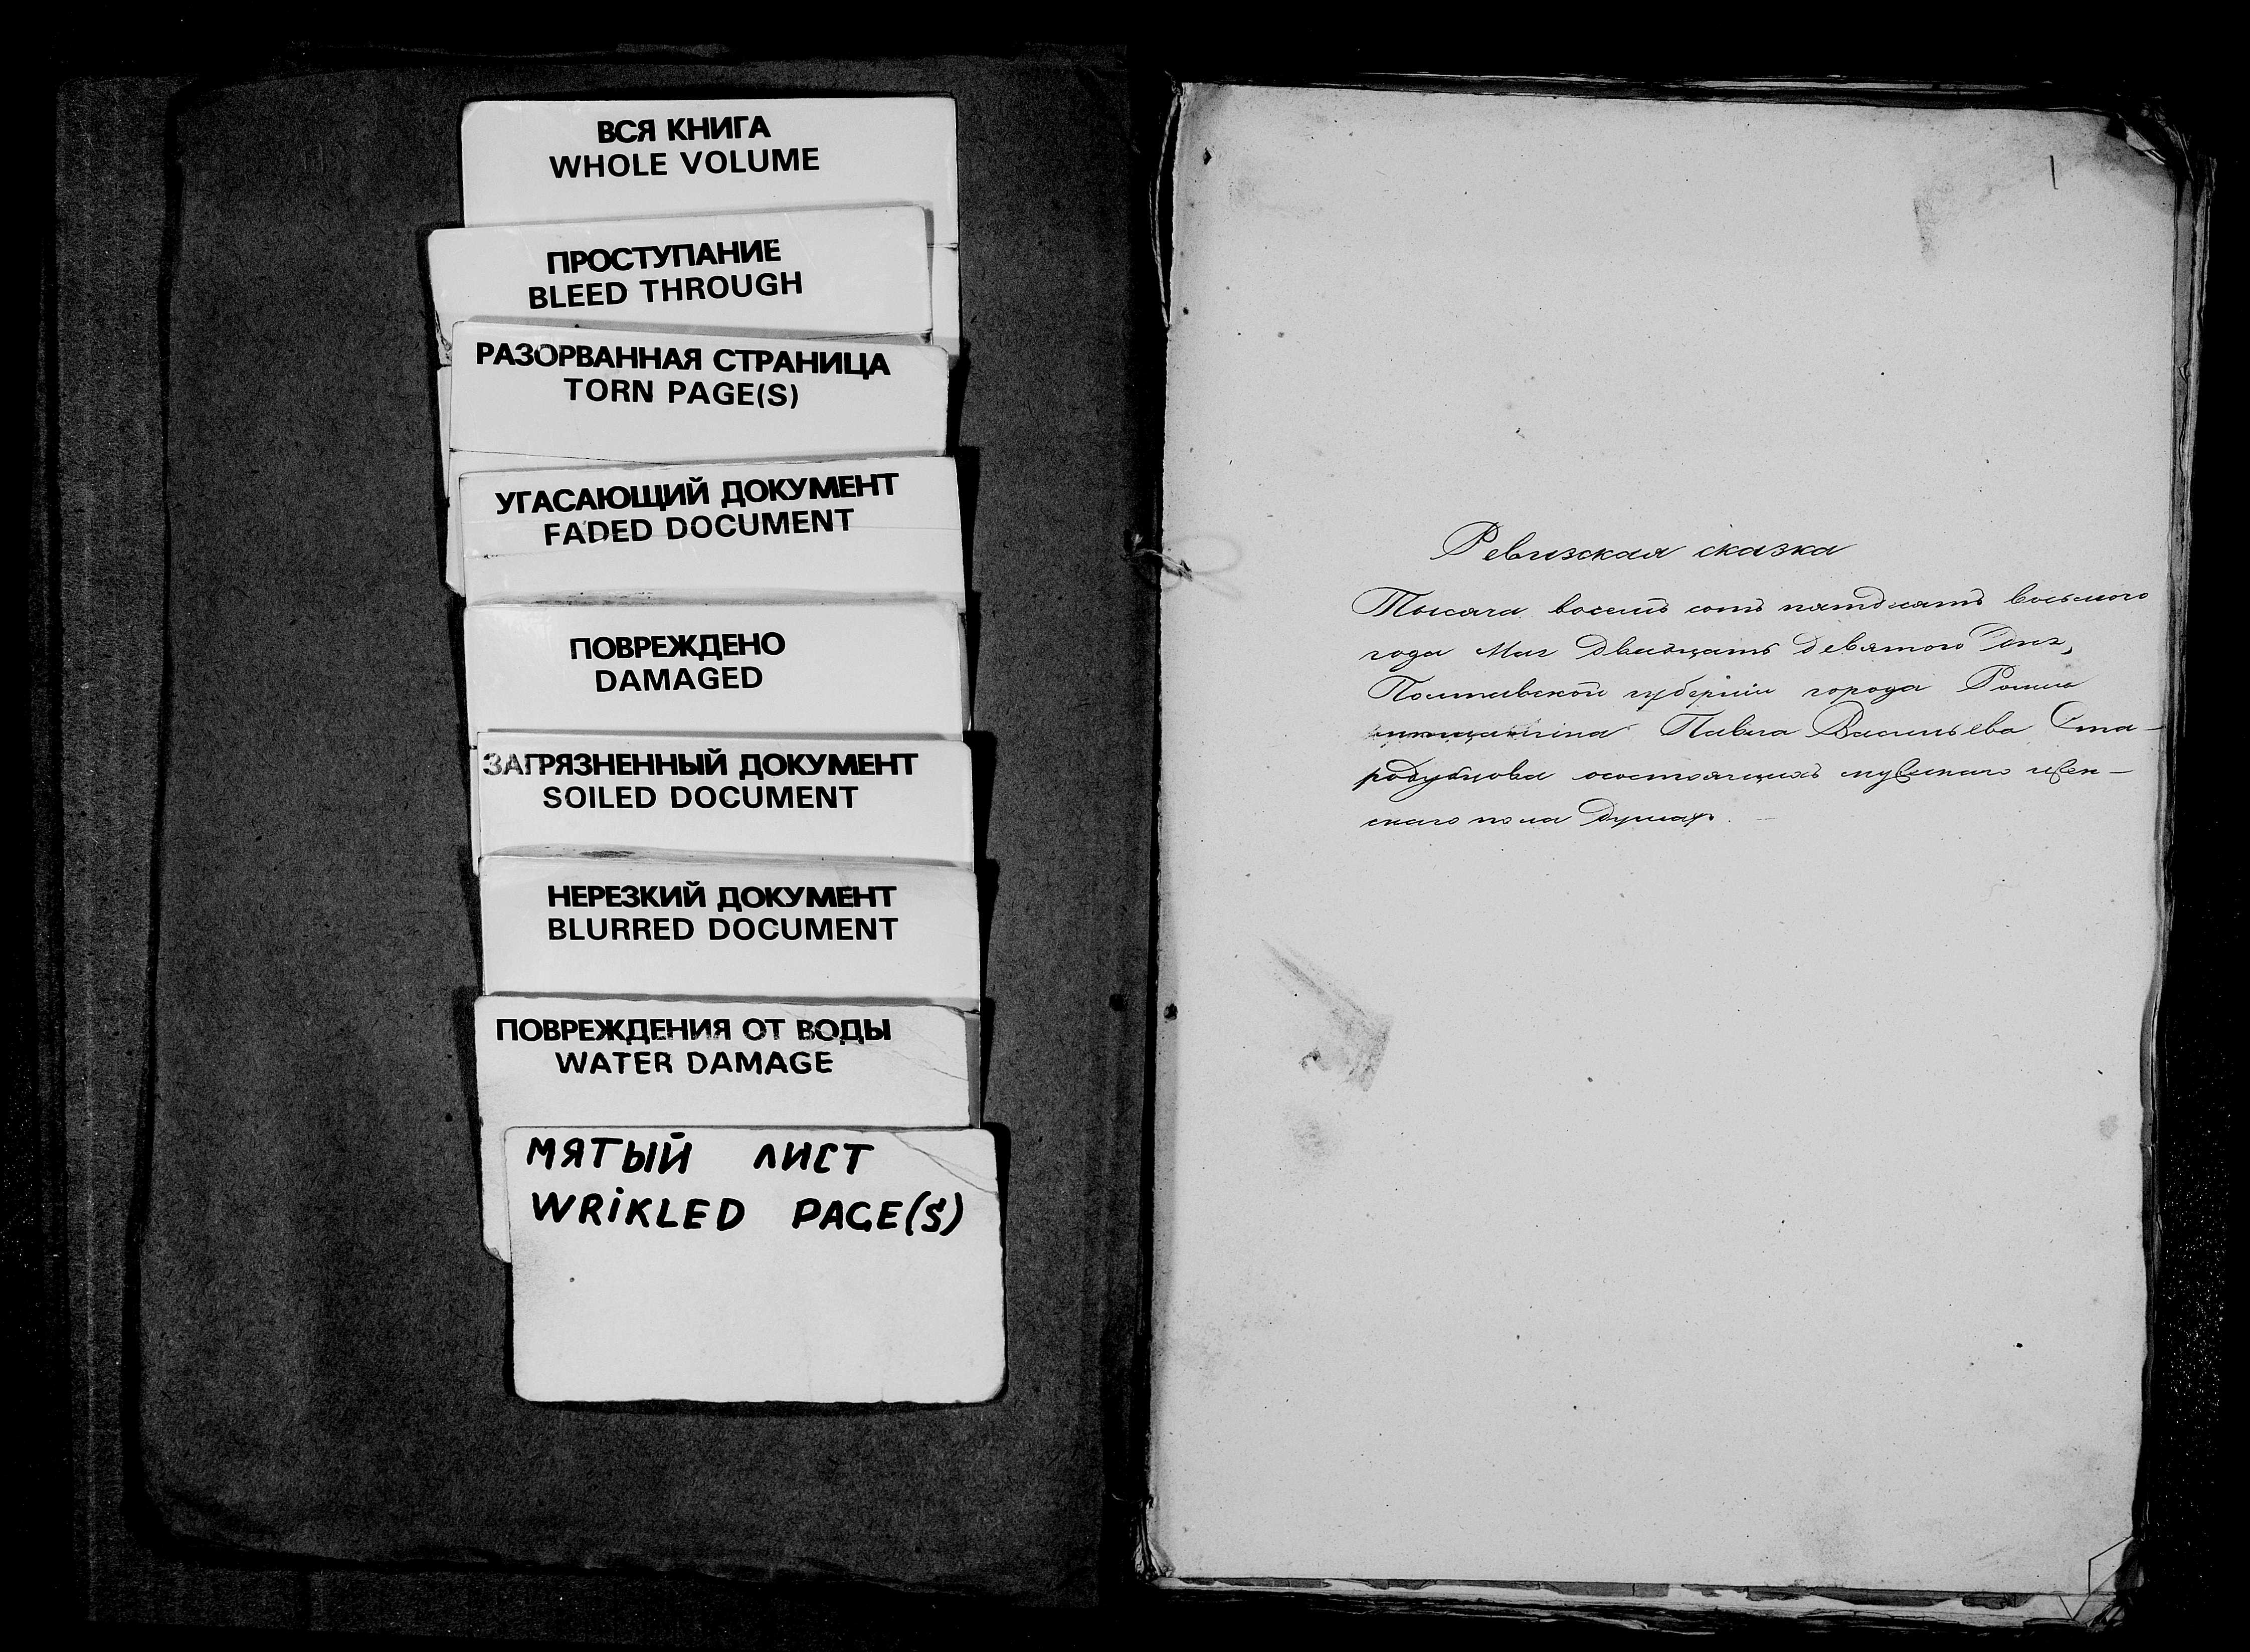 ВСЯ КНИГА
WHOLE VOLUME
ПРОСТУПАНИЕ
BLEED THROUGH
РАЗОРВАННАЯ СТРАНИЦА
TORN PAGE(S)
УГАСАЮЩИЙ ДОКУМЕНТ
FADED DOCUMENT
ПОВРЕЖДЕНО
DAMAGED
ЗАГРЯЗНЕННЫЙ ДОКУМЕНТ
SOILED DOCUMENT
НЕРЕЗКИЙ ДОКУМЕНТ
BLURRED DOCUMENT
ПОВРЕЖДЕНИЯ ОТ ВОДЫ
WATER DAMAGE
МЯТЫЙ ЛИСТ
WRIKLED PAGE(S)
1
Ревизская сказка
Тысяча восемь сотъ пятдесятъ восьмого
года Мая двадцать девятого дня,
Полтавской губерніи города Ромна
Павла Васильева Ста-
родубцова осостоящихъ мужскаго женскаго пола душах.